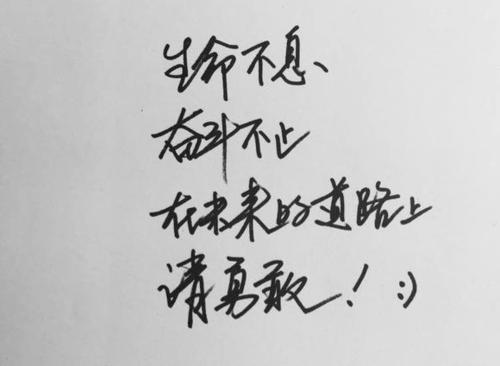 生命不息、
奋斗不止
在未来的道路上
请勇敢！:)